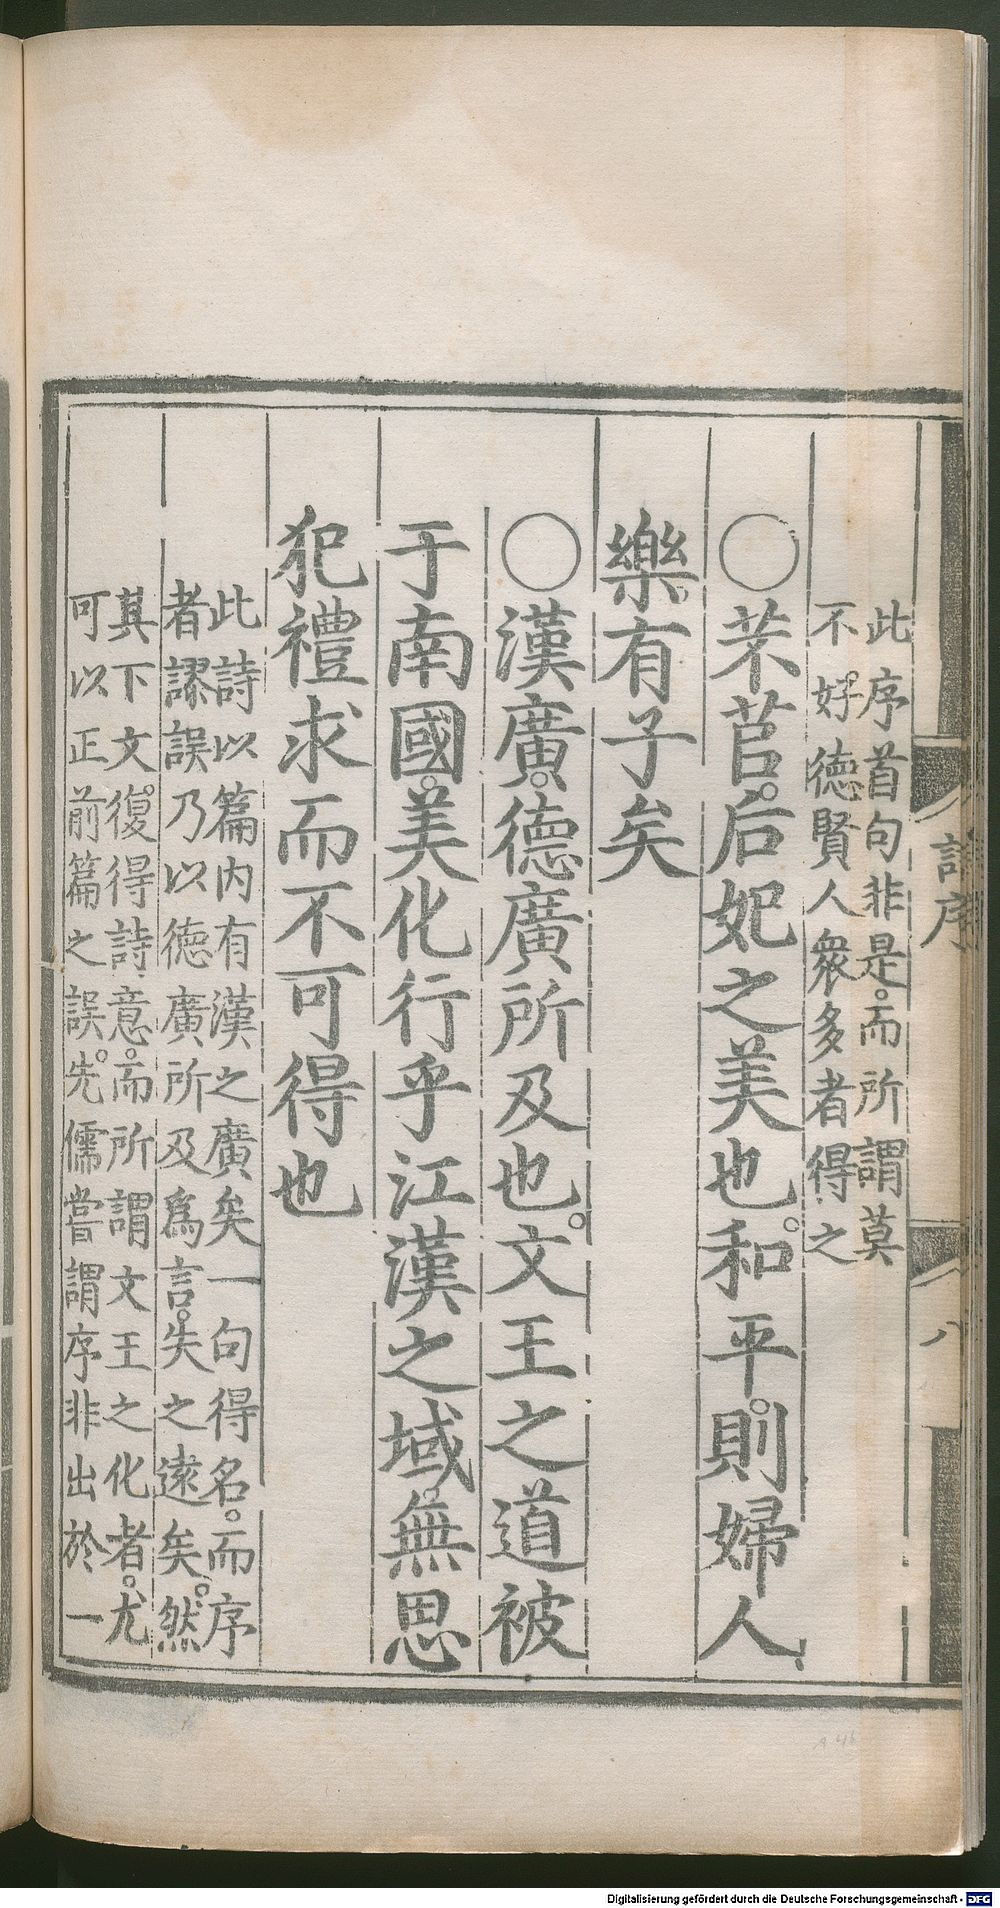 此序首句非是。而所謂莫
不好。德賢人衆多者得之
○芣苢。后妃之美也。和平。則婦人
樂。有子矣
○漢廣。德廣所及也。文王之道被
于南國。美化行乎江漢之域。無思
犯禮求而不可得也
此詩以篇內有漢之廣矣一句得名。而序
者謬誤乃以德廣所及爲言。失之遠矣。然
其下文。復得詩意。而所謂文王之化者。尤
可以正前篇之誤。先儒嘗謂序非出於一
詩序
八
Digitalisierung gefördert durch die Deutsche Forschungsgemeinschaft - DFG